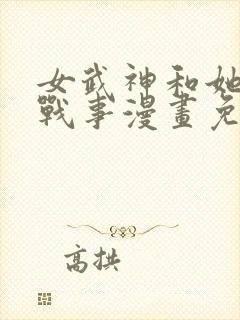 女武神和她
戰事漫畫免
高拱